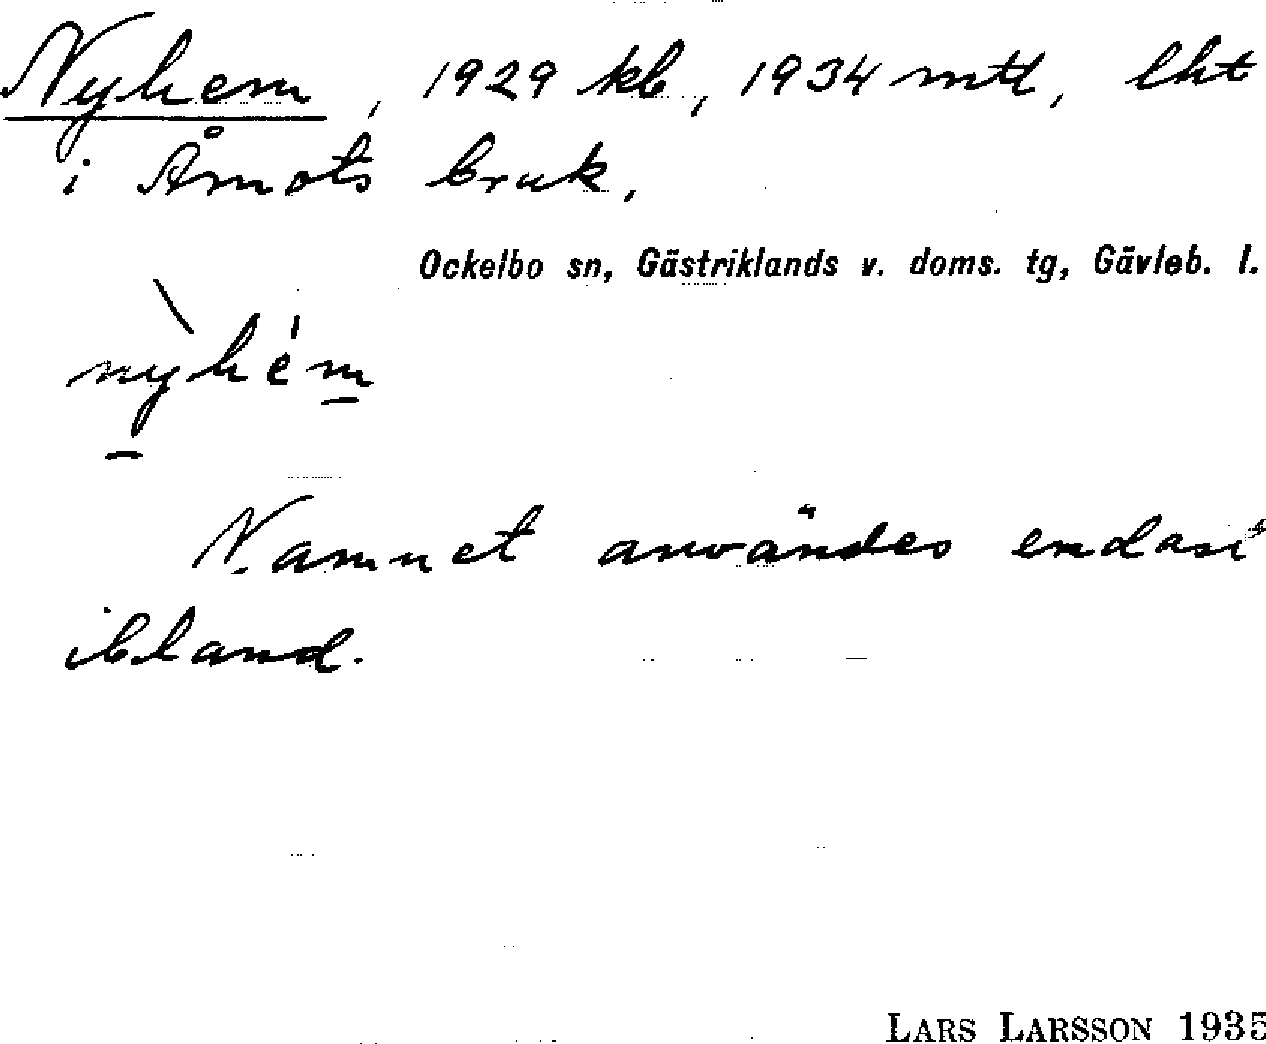 Nyhem, 1929 kb, 1934 mtl, lht
i Åmots bruk.
Ockelbo sn, Gästriklands v. doms. tg, Gävleb. l.
nỳhém
Namnet användes endast
ibland.
LARS LARSSON 1935